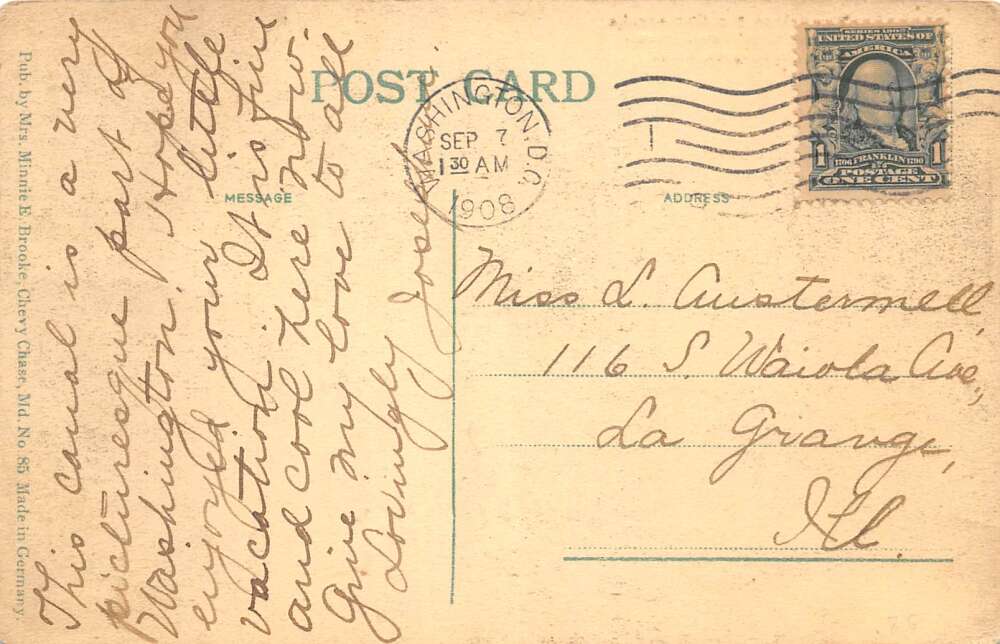 POST CARD
MESSAGE
ADDRESS
Pub. by Mrs. Minnie E. Brooke-Chevy Chase, Md. No. 85 Made in Germany.
This canal is a very
picturesque part of
Washington. Hope you
enjoyed your little
vacation. It is fine
and cool here now.
Give my love to all
Lovingly Joseph.
WASHINGTON, D.C.
SEP 7
1 30 AM
1908
1
SERIES 1902
UNITED STATES OF
AMERICA
1706 FRANKLIN 1790
1 1
POSTAGE
ONE CENT
Miss L. Austermell,
116 S. Waiola Ave.,
La Grange,
Ill.